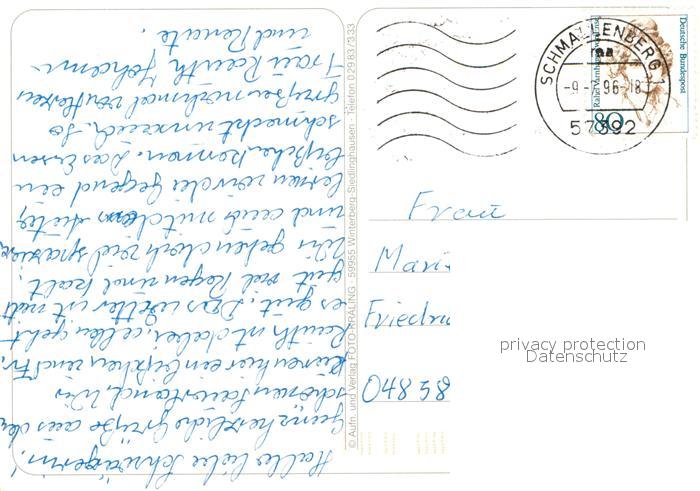 Hallo liebe Schwägerin!
Ganz herzliche Grüße aus dem
schönen Sauerland. Wir
kuren hier ein bißchen und Fr.
Rauth ist dabei, allen geht
es gut. Das Wetter ist nicht
gut viel Regen und kalt.
Wir gehen doch viel spazieren
und auch mit dem Auto,
lernen wir die Gegend ein
bißchen kennen. Das Essen
schmeckt uns auch. So
grüßen nochmal von Herzen
Frau Rauth Johann
und Renate.
© Aufn. und Verlag FOTO-KRÄLING · 59955 Winterberg-Siedlinghausen · Telefon 02983/333
SCHMALLENBERG 1
aa
-9.-7.96-18
57392
Deutsche Bundespost
80
Frau
Mari
Friedr
04858
privacy protection
Datenschutz